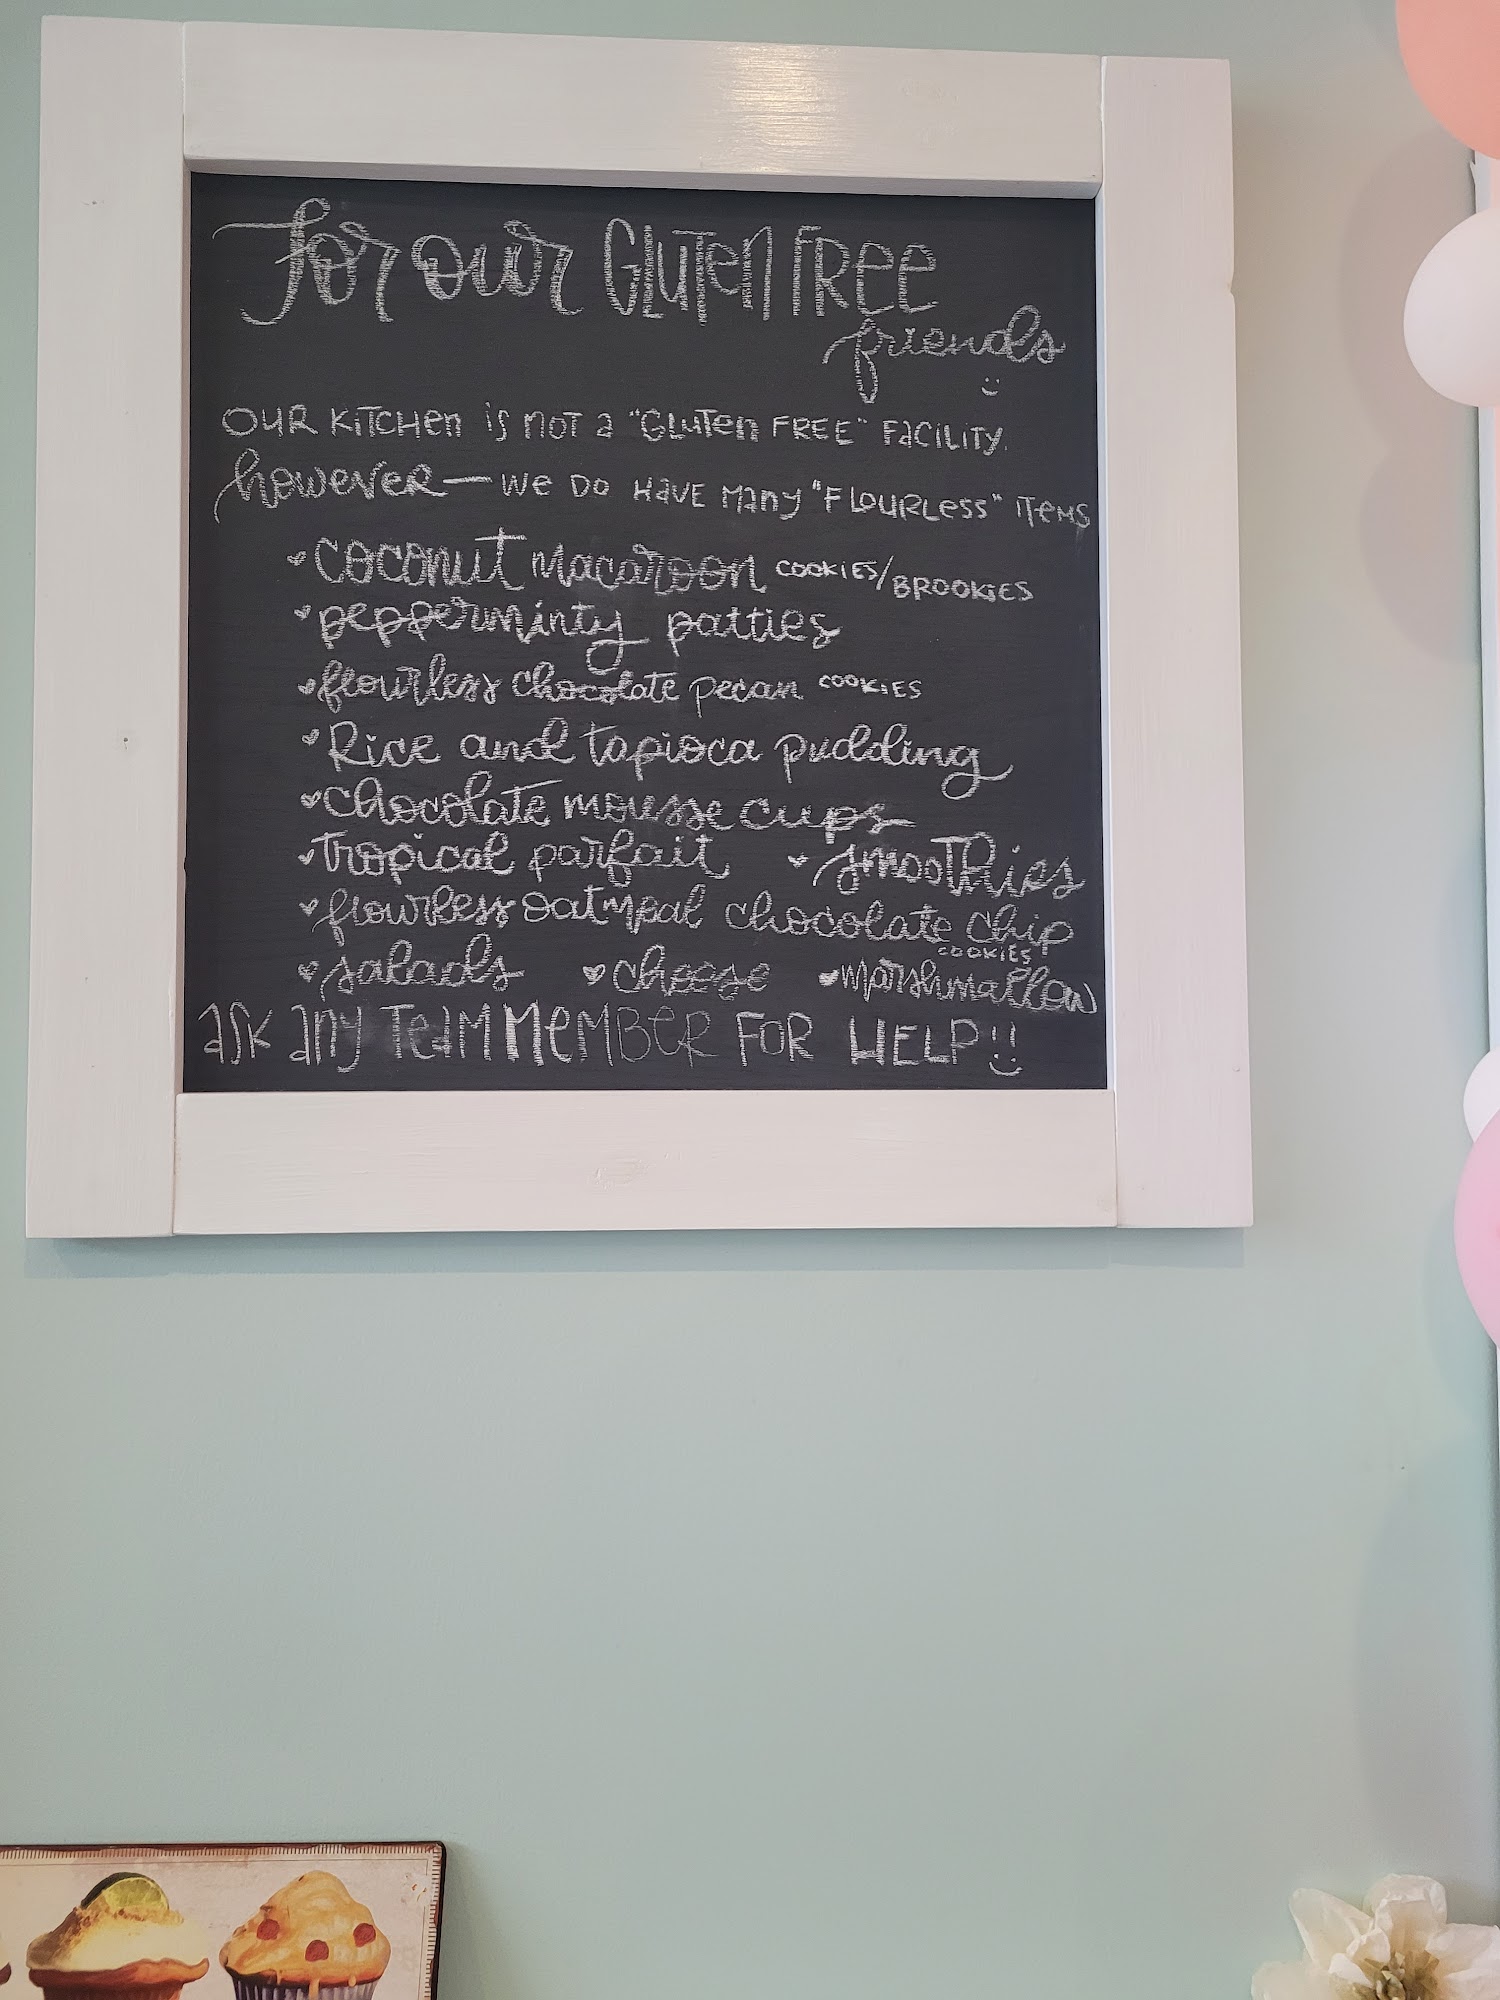 for our GLUTEN FREE
friends
OUR KITCHEN is NOT a "GLUTEN FREE" FACILITY.
however — WE DO HAVE MANY "FLOURLESS" ITEMS
COCONUT MACAROON COOKIES/BROOKIES
pepperminty patties
flourless chocolate pecan COOKIES
Rice and tapioca pudding
chocolate mousse cups
tropical parfait smoothies
flourless oatmeal chocolate chip
COOKIES
salads cheese marshmallow
ask any TEAM MEMBER FOR HELP!!